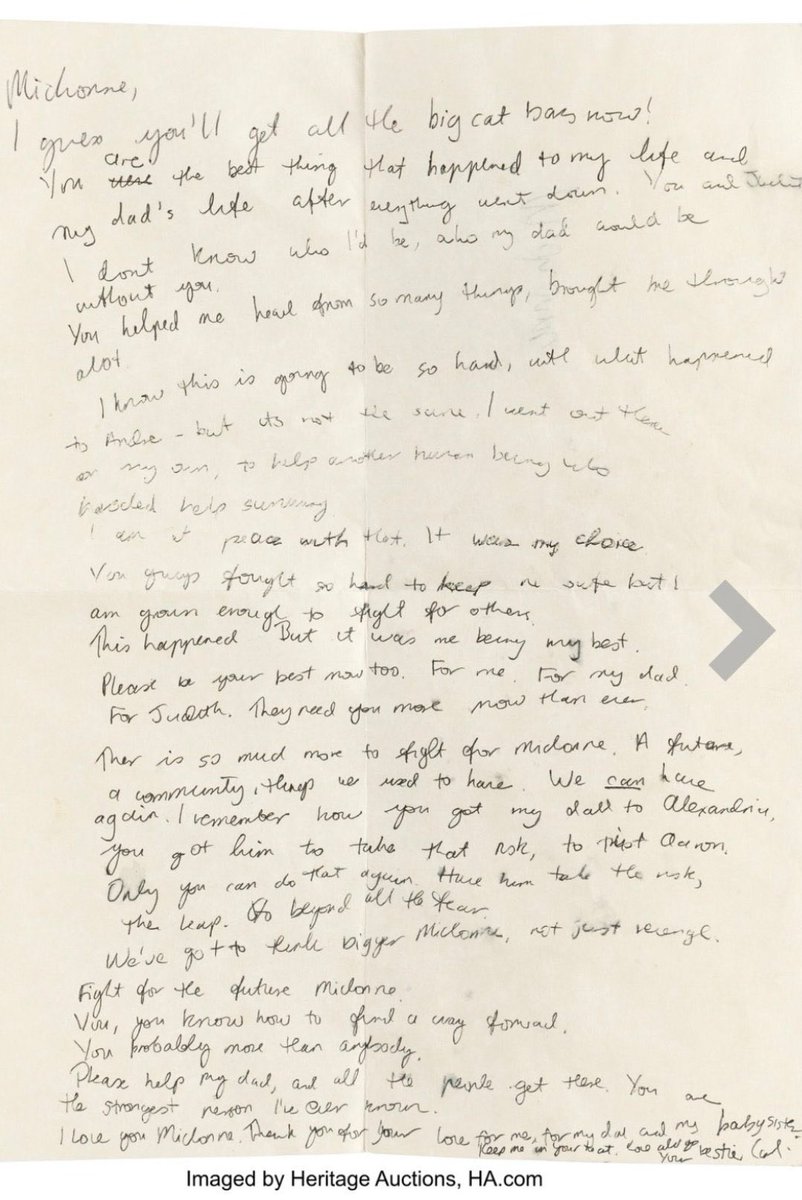 Michonne,
I guess you'll get all the big cat bars now!
You were are the best thing that happened to my life and
my dad's life after everything went down. You and Judith
I dont know who I'd be, who my dad would be
without you.
You helped me heal from so many things, brought me through
alot.
I know this is going to be so hard, with what happened
to Andre - but its not the same. I went out there
on my own, to help another human being who
needed help surviving.
I am at peace with that. It was my choice.
You guys fought so hard to keep me safe but I
am grown enough to fight for others.
This happened But it was me being my best.
Please be your best now too. For me. For my dad.
For Judith. They need you more now than ever.
Ther is so much more to fight for Michonne. A future,
a community, things we used to have. We can have
again. I remember how you got my dad to Alexandria,
you got him to take that risk, to trust Aaron.
Only you can do that again. Have him take the risk,
the leap. Go beyond all the fear.
We've got to think bigger Michonne, not just revenge.
Fight for the future Michonne.
You, you know how to find a way forward.
You probably more than anybody.
Please help my dad, and all the people get there. You are
the strongest person I've ever known.
I love you Michonne. Thank you for your love for me, for my dad and my baby sister.
Keep me in your heart. love always
Your bestie, Carl.
Imaged by Heritage Auctions, HA.com